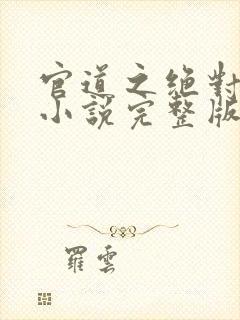 官道之絶對
小說完整版
羅雲